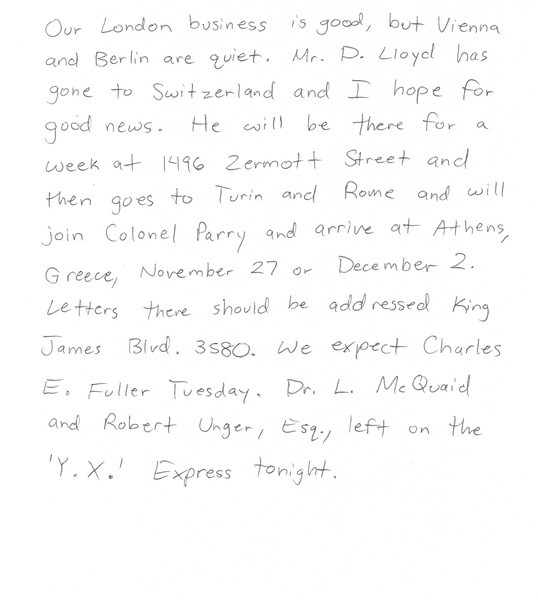 Our London business is good, but Vienna
and Berlin are quiet. Mr. D. Lloyd has
gone to Switzerland and I hope for
good news. He will be there for a
week at 1496 Zermott Street and
then goes to Turin and Rome and will
join Colonel Parry and arrive at Athens,
Greece, November 27 or December 2.
Letters there should be addressed King
James Blvd. 3580. We expect Charles
E. Fuller Tuesday. Dr. L. McQuaid
and Robert Unger, Esq., left on the
'Y.X.' Express tonight.